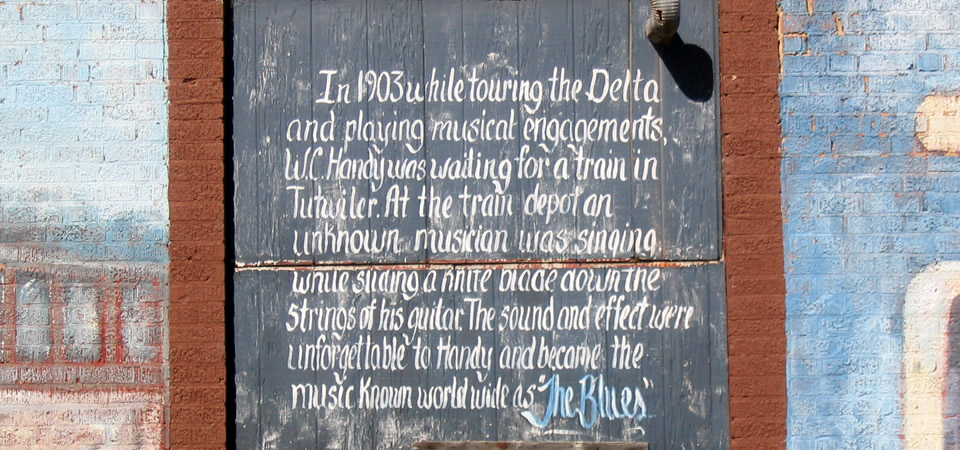 In 1903 while touring the Delta
and playing musical engagements,
W.C. Handy was waiting for a train in
Tutwiler. At the train depot an
unknown musician was singing
while sliding a knife blade down the
strings of his guitar. The sound and effect were
unforgettable to Handy and became the
music known world wide as "The Blues"